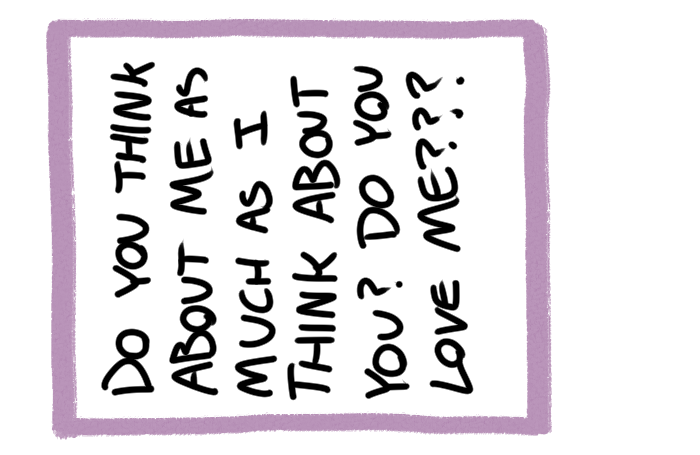 DO YOU THINK
ABOUT ME AS
MUCH AS I
THINK ABOUT
YOU? DO YOU
LOVE ME???